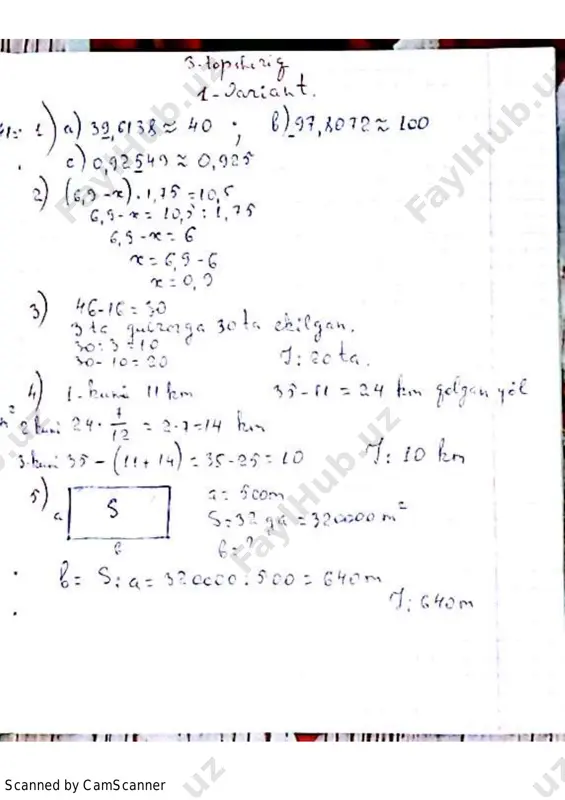 3-topshiriq
1-Variant.
1) a) 39,6138≈ 40 ; b) 97,8072≈ 100
c) 0,92549≈ 0,925
2) (6,9-x)·1,75=10,5
6,9-x= 10,5:1,75
6,9-x= 6
x=6,9-6
x=0,9
3) 46-16=30
3 ta qutorga 30 ta ekilgan.
30:3=10
30-10=20 J: 20 ta.
4) 1-kuni 11 km 35-11 = 24 km qolgan yo'l
2 kuni 24 · 7/12 = 2·7=14 km
3-kuni 35-(11+14)=35-25=10 J: 10 km
5) a S b
a= 500m
S=32 ga=320000 m²
b=?
b= S:a=320000:500=640m
J: 640m
Scanned by CamScanner
FaylHub.uz
FaylHub.uz
FaylHub.uz
FaylHub.uz
uz
uz